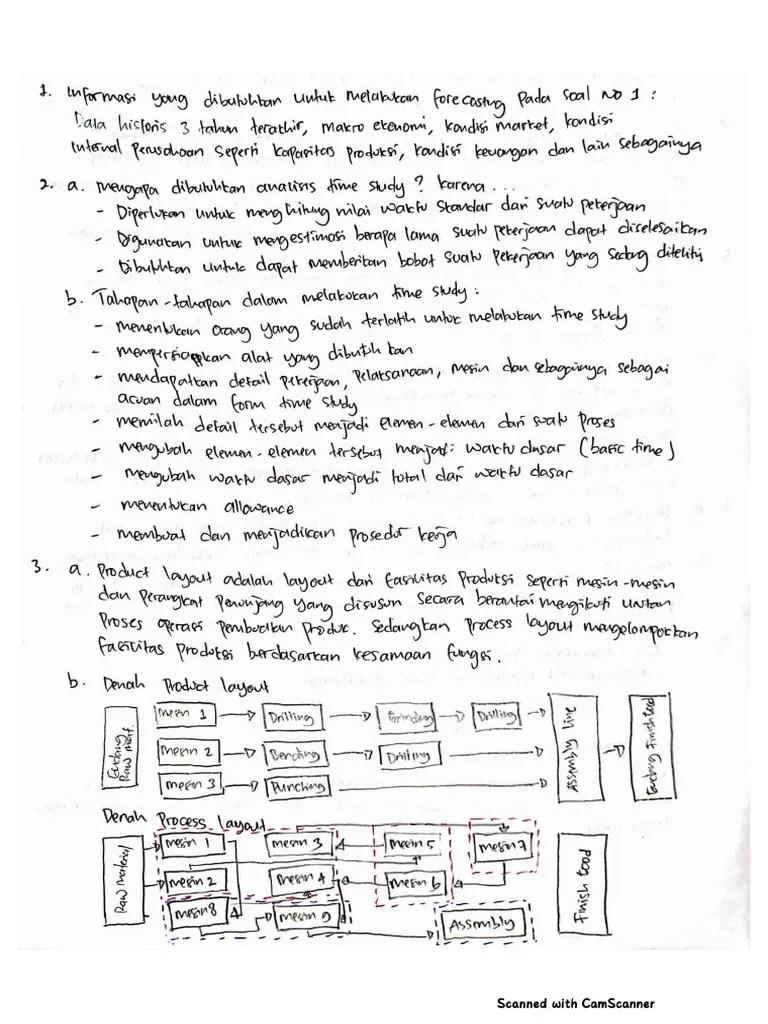 1. Informasi yang dibutuhkan untuk melakukan forecasting pada soal no 1 :
Data historis 3 tahun terakhir, makro ekonomi, kondisi market, kondisi
internal perusahaan seperti kapasitas produksi, kondisi keuangan dan lain sebagainya
2. a. mengapa dibutuhkan analisis time study ? karena ...
- Diperlukan untuk menghitung nilai waktu standar dari suatu pekerjaan
- Digunakan untuk mengestimasi berapa lama suatu pekerjaan dapat diselesaikan
- Dibutuhkan untuk dapat memberikan bobot suatu pekerjaan yang sedang diteliti
b. Tahapan-tahapan dalam melakukan time study :
- menentukan orang yang sudah terlatih untuk melakukan time study
- mempersiapkan alat yang dibutuhkan
- mendapatkan detail pekerjaan, pelaksanaan, mesin dan sebagainya sebagai
acuan dalam form time study
- memilah detail tersebut menjadi elemen-elemen dari suatu proses
- mengubah elemen-elemen tersebut menjadi waktu dasar (basic time)
- mengubah waktu dasar menjadi total dari waktu dasar
- menentukan allowance
- membuat dan menjadikan prosedur kerja
3. a. Product layout adalah layout dari fasilitas produksi seperti mesin-mesin
dan perangkat penunjang yang disusun secara berantai mengikuti urutan
proses operasi pembuatan produk. Sedangkan process layout mengelompokkan
fasilitas produksi berdasarkan kesamaan fungsi.
b. Denah Product layout
Gudang Raw mat.
mesin 1 Drilling Grinding Drilling
mesin 2 Bending Drilling
mesin 3 Punching
Assembly line
Gudang Finish Good
Denah Process layout
Raw material
mesin 1 mesin 3 mesin 5 mesin 7
mesin 2 mesin 4 mesin 6
mesin 8 mesin 9 Assembly
Finish Good
Scanned with CamScanner